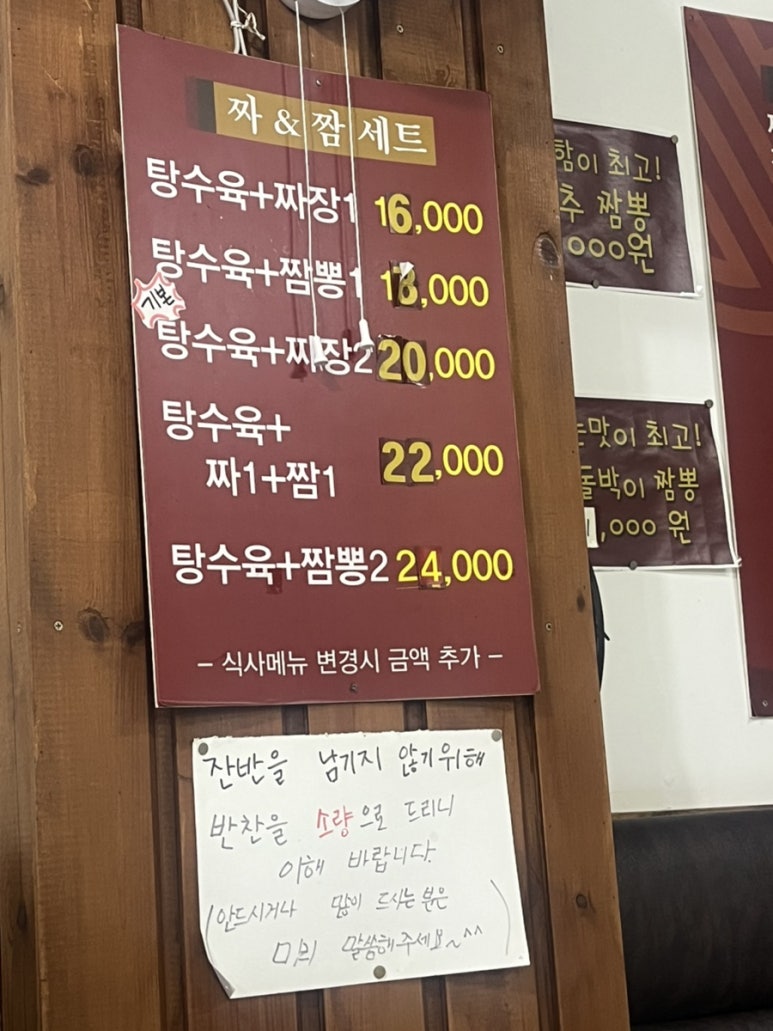 짜 & 짬 세트
탕수육+짜장1 16,000
탕수육+짬뽕1 18,000
기본
탕수육+짜장2 20,000
탕수육+
짜1+짬1 22,000
탕수육+짬뽕2 24,000
- 식사메뉴 변경시 금액 추가 -
잔반을 남기지 않기위해
반찬을 소량으로 드리니
이해 바랍니다.
(안드시거나 많이 드시는 분은
미리 말씀해주세요~^^)
함이 최고!
추 짬뽕
,000원
맛이 최고!
돌박이 짬뽕
1,000 원